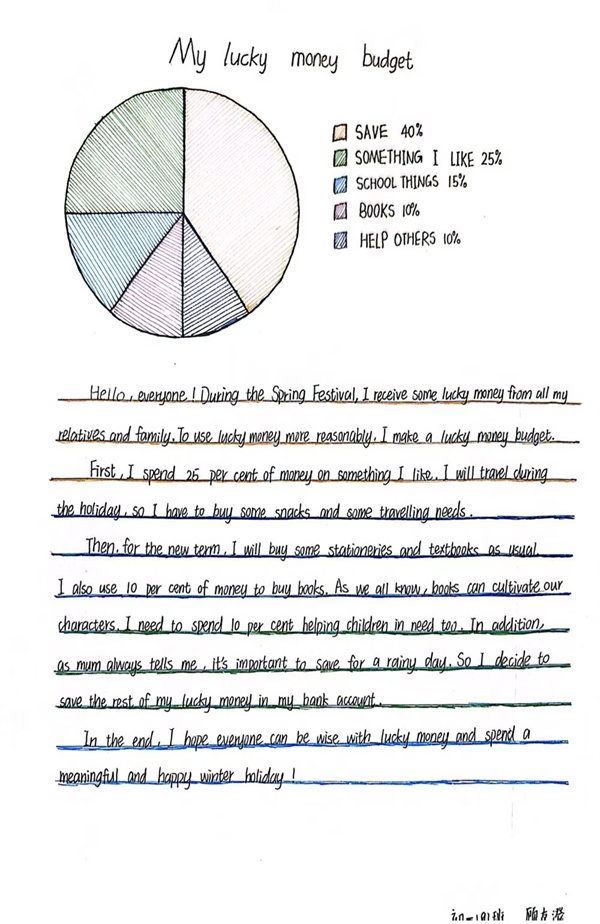 My lucky money budget
SAVE 40%
SOMETHING I LIKE 25%
SCHOOL THINGS 15%
BOOKS 10%
HELP OTHERS 10%
Hello, everyone! During the Spring Festival, I receive some lucky money from all my
relatives and family. To use lucky money more reasonably, I make a lucky money budget.
First, I spend 25 per cent of money on something I like. I will travel during
the holiday, so I have to buy some snacks and some travelling needs.
Then, for the new term, I will buy some stationeries and textbooks as usual.
I also use 10 per cent of money to buy books. As we all know, books can cultivate our
characters. I need to spend 10 per cent helping children in need too. In addition,
as mum always tells me, it's important to save for a rainy day. So I decide to
save the rest of my lucky money in my bank account.
In the end, I hope everyone can be wise with lucky money and spend a
meaningful and happy winter holiday!